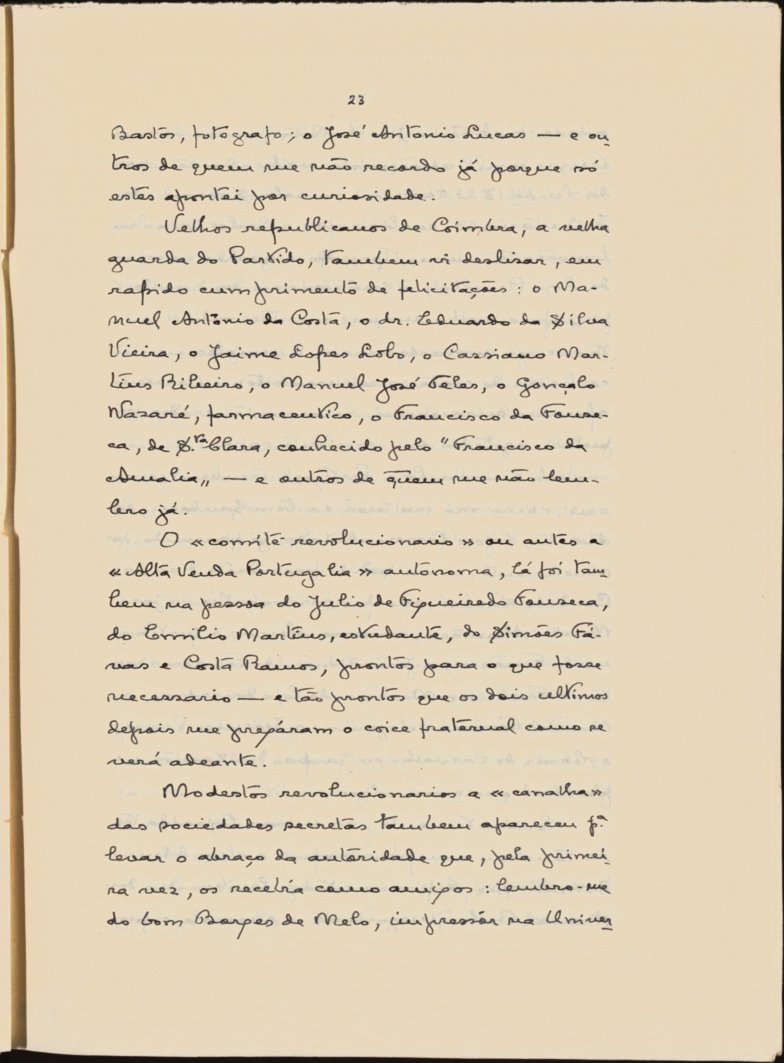 23
Bastos, fotografo; o José Antonio Lucas — e ou-
tros de quem me não recordo já porque só
estes apontei por curiosidade.
Velhos republicanos de Coimbra, a velha
guarda do Partido, tambem vi deslisar, em
rapido cumprimento de felicitações: o Ma-
nuel António da Costa, o dr. Eduardo da Silva
Vieira, o Jaime Lopes Lobo, o Cassiano Mar-
tins Ribeiro, o Manuel José Teles, o Gonçalo
Nazaré, farmaceutico, o Francisco da Fonse-
ca, de S.ta Clara, conhecido pelo "Francisco da
Amalia" — e outros de quem me não lem-
bro já.
O «comité revolucionario» ou antes a
«Alta Venda Portugalia» autonoma, lá foi tam-
bem na pessoa do Julio de Figueiredo Fonseca,
do Emilio Martins, estudante, do Simões Fá-
vas e Costa Ramos, prontos para o que fosse
necessario — e tão prontos que os dois ultimos
depois me preparáram o coice fraternal como se
verá adeante.
Modestos revolucionarios a «canalha»
das sociedades secretas tambem apareceu p.a
levar o abraço da autoridade que, pela primei-
ra vez, os recebia como amigos: lembro-me
do bom Borges de Melo, impressôr na Univer-